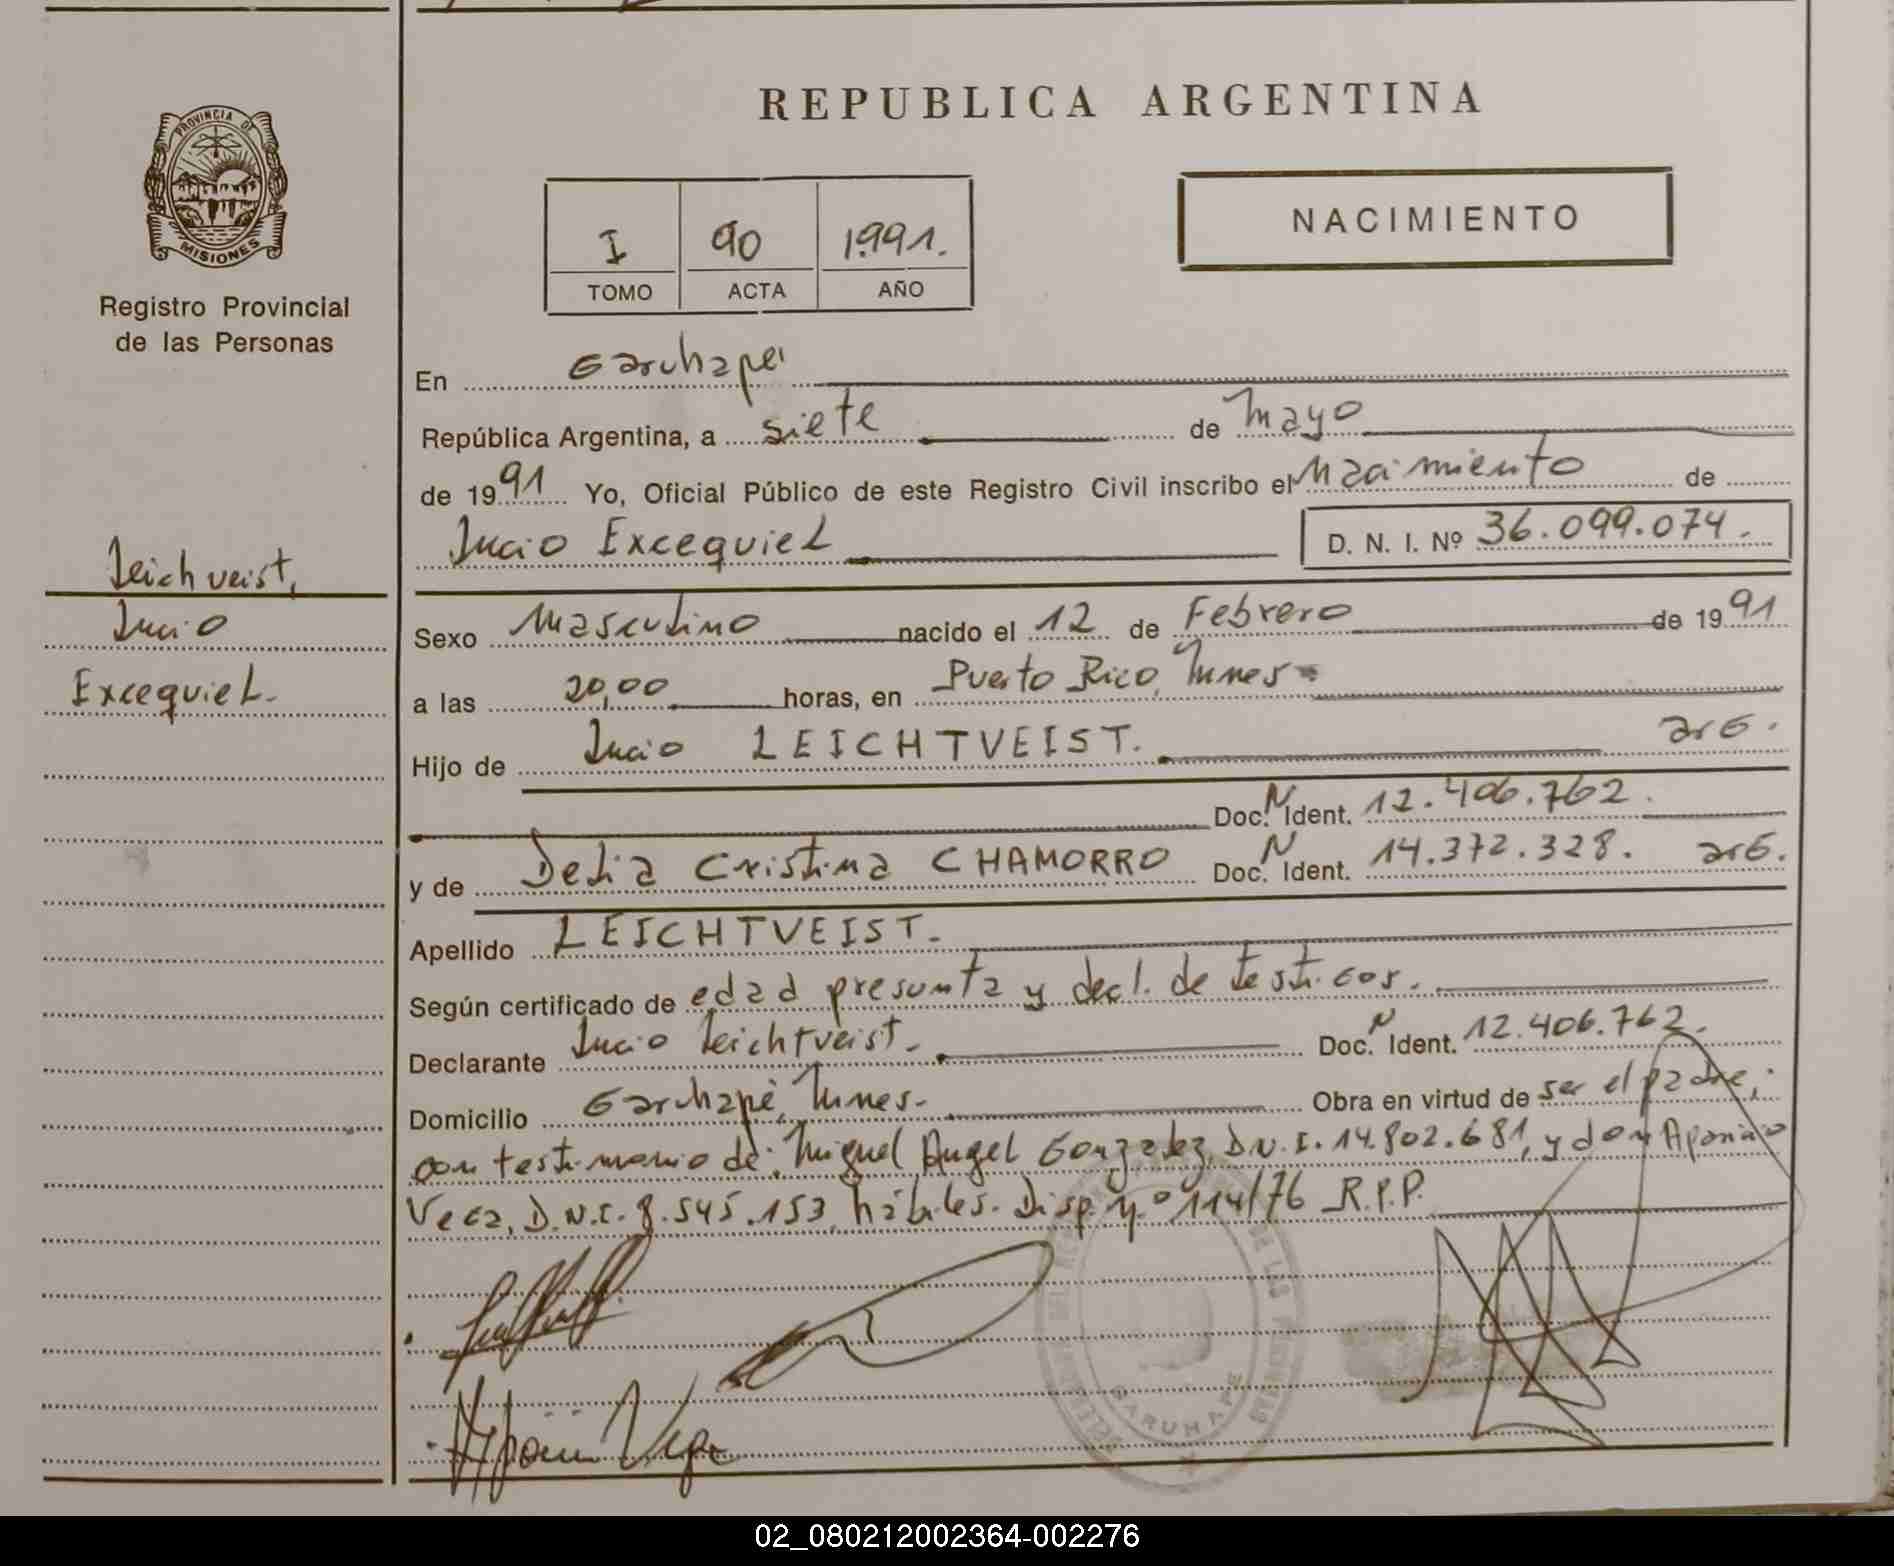 REPUBLICA ARGENTINA
PROVINCIA DE
MISIONES
Registro Provincial
de las Personas
I 90 1.991.
TOMO ACTA AÑO
NACIMIENTO
En Garuhapé
República Argentina, a siete de mayo
de 1991 Yo, Oficial Público de este Registro Civil inscribo el Nacimiento de
Lucio Excequiel D. N. I. Nº 36.099.074.
Leichveist,
Lucio
Excequiel.
Sexo Masculino nacido el 12 de Febrero de 1991
a las 20,00 horas, en Puerto Rico, Mnes
Hijo de Lucio LEICHTVEIST. arG.
Doc. N Ident. 12.406.762.
y de Delia Cristina CHAMORRO Doc. N Ident. 14.372.328. arG.
Apellido LEICHTVEIST.
Según certificado de edad presunta y decl. de testigos.
Declarante Lucio Leichtveist. Doc. N Ident. 12.406.762.
Domicilio Garuhapé, Mnes. Obra en virtud de ser el padre;
con testimonio de: Miguel Angel Gonzalez, D.N.I. 14.802.681, y don Aparicio
Vega, D.N.I. 8.545.153, hábiles. Disp. nº 114/76 R.P.P.
DE LAS PERSONAS
GARUHAPE
Vega
02_080212002364-002276